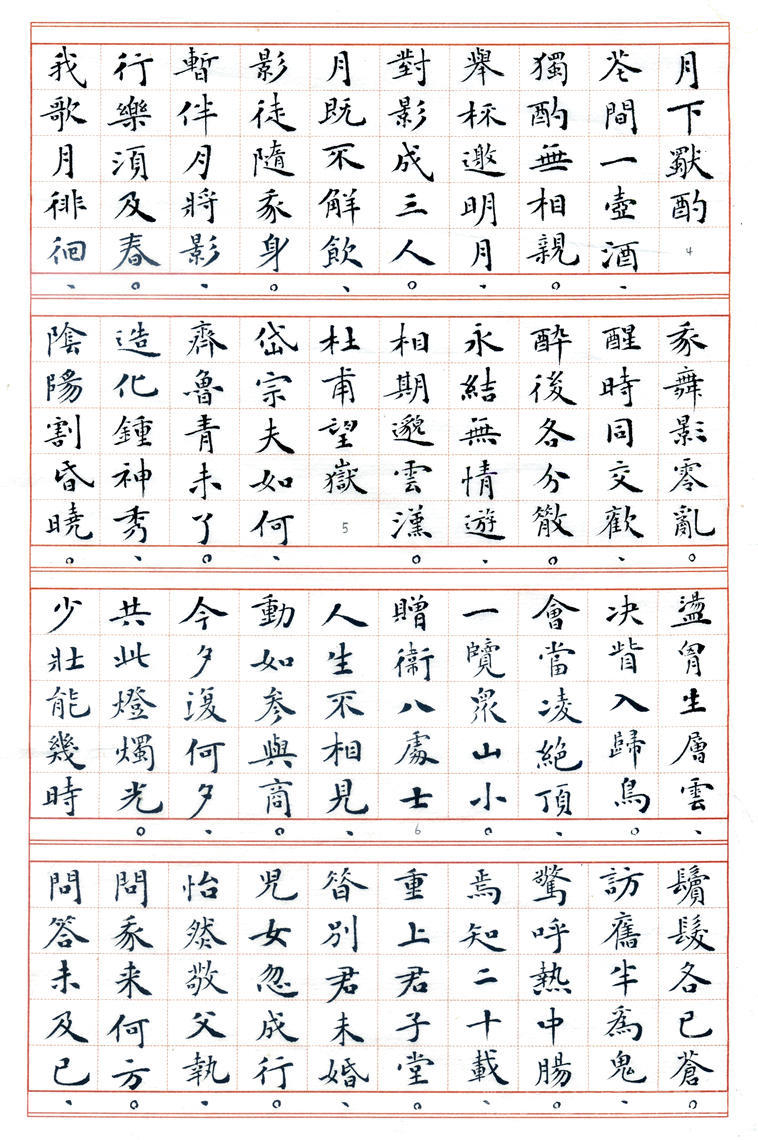 月下獨酌 4
花間一壺酒、
獨酌無相親。
舉杯邀明月、
對影成三人。
月既不解飲、
影徒隨我身。
暫伴月將影、
行樂須及春。
我歌月徘徊、
我舞影零亂。
醒時同交歡、
醉後各分散。
永結無情遊、
相期邈雲漢。
杜甫望嶽 5
岱宗夫如何、
齊魯青未了。
造化鍾神秀、
陰陽割昏曉。
盪胷生層雲、
决眥入歸鳥。
會當凌絕頂、
一覽眾山小。
贈衛八處士 6
人生不相見、
動如參與商。
今夕復何夕、
共此燈燭光。
少壯能幾時、
鬢髮各已蒼。
訪舊半為鬼、
驚呼熱中腸。
焉知二十載、
重上君子堂。
昔別君未婚、
兒女忽成行。
怡然敬父執、
問我来何方。
問答未及已、